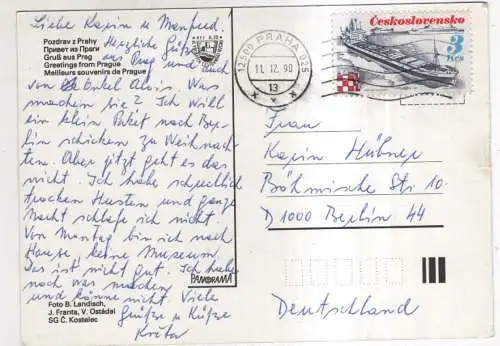 Liebe Karin u Manfred!
Pozdrav z Prahy
Привет из Праги
Gruß aus Prag
Greetings from Prague
Meilleurs souvenirs de Prague
Herzliche Grüße
aus Prag und auch
von Enkel Alois. Was
machen Sie? Ich will
ein klein Paket nach Ber-
lin schicken zu Weihnach-
ten. Aber jitzt geht es das
nicht. Ich habe schrecklich
trochen Husten und ganze
Nacht schlafe ich nicht.
Von Montag bin ich nach
Hause, keine Museum.
Das ist nicht gut. Ich habe
noch was machen
und könne nicht. Viele
Grüße u Küße
Květa
Foto B. Landisch,
J. Franta, V. Ostádal
SG Č. Kostelec
PANORAMA
12000 PRAHA 025
11. 12. 90
13
Československo
3
Kčs
Frau
Karin Hübner
Böhmische Str 10.
D 1000 Berlin 44
Deutschland